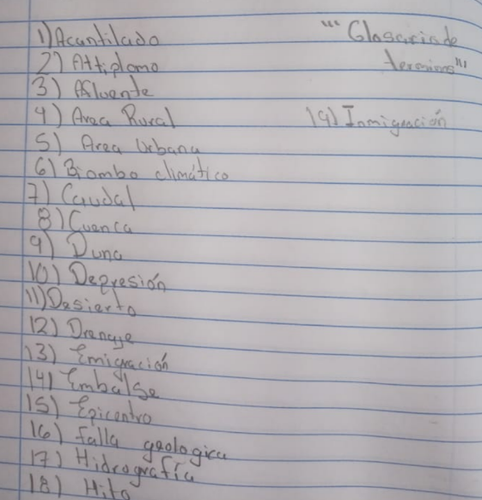 1) Acantilado
2) Altiplano
3) Afluente
4) Area Rural
5) Area Urbana
6) Biombo climático
7) Caudal
8) Cuenca
9) Duna
10) Depresión
11) Desierto
12) Drenaje
13) Emigración
14) Embalse
15) Epicentro
16) Falla geologica
17) Hidrografía
18) Hito
"" Glosario de
terminos ""
19) Inmigración